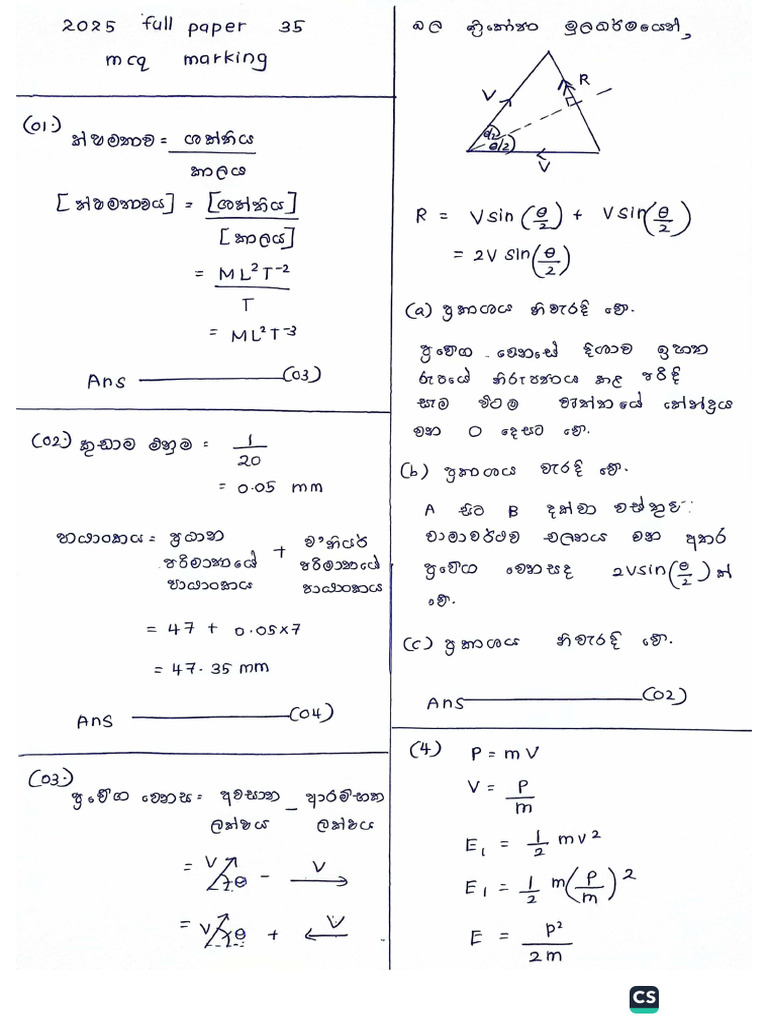 2025 full paper 35
mcq marking
(01.)
ක්ෂමතාව = ශක්තිය
කාලය
[ක්ෂමතාවය] = [ශක්තිය]
[කාලය]
= ML²T⁻²
T
= ML²T⁻³
Ans (03)
(02.) කුඩාම මිනුම = 1
20
= 0.05 mm
පාඨාංකය = ප්‍රධාන + ව'නියර්
පරිමාණයේ පරිමාණයේ
පාඨාංකය පාඨාංකය
= 47 + 0.05×7
= 47.35 mm
Ans (04)
(03.)
ප්‍රවේග වෙනස = අවසාන _ ආරම්භක
ලක්ෂය ලක්ෂය
= V θ - V
= V θ + V
බල ත්‍රිකෝණ මූලධර්මයෙන්,
V R
θ/2
θ/2
V
R = V sin (θ/2) + V sin (θ/2)
= 2V sin (θ/2)
(a) ප්‍රකාශය නිවැරදි වේ.
ප්‍රවේග වෙනසේ දිශාව ඉහත
රූපයේ නිරූපණය කළ පරිදි
සෑම විටම වෘත්තයේ කේන්ද්‍රය
වන O දෙසට වේ.
(b) ප්‍රකාශය වැරදි වේ.
A සිට B දක්වා වස්තුව
වාමාවර්ථව චලනය වන අතර
ප්‍රවේග වෙනසද 2V sin (θ/2) ක්
වේ.
(c) ප්‍රකාශය නිවැරදි වේ.
Ans (02)
(4) P = mV
V = P
m
E₁ = 1/2 mv²
E₁ = 1/2 m(P/m)²
E = P²
2m
CS